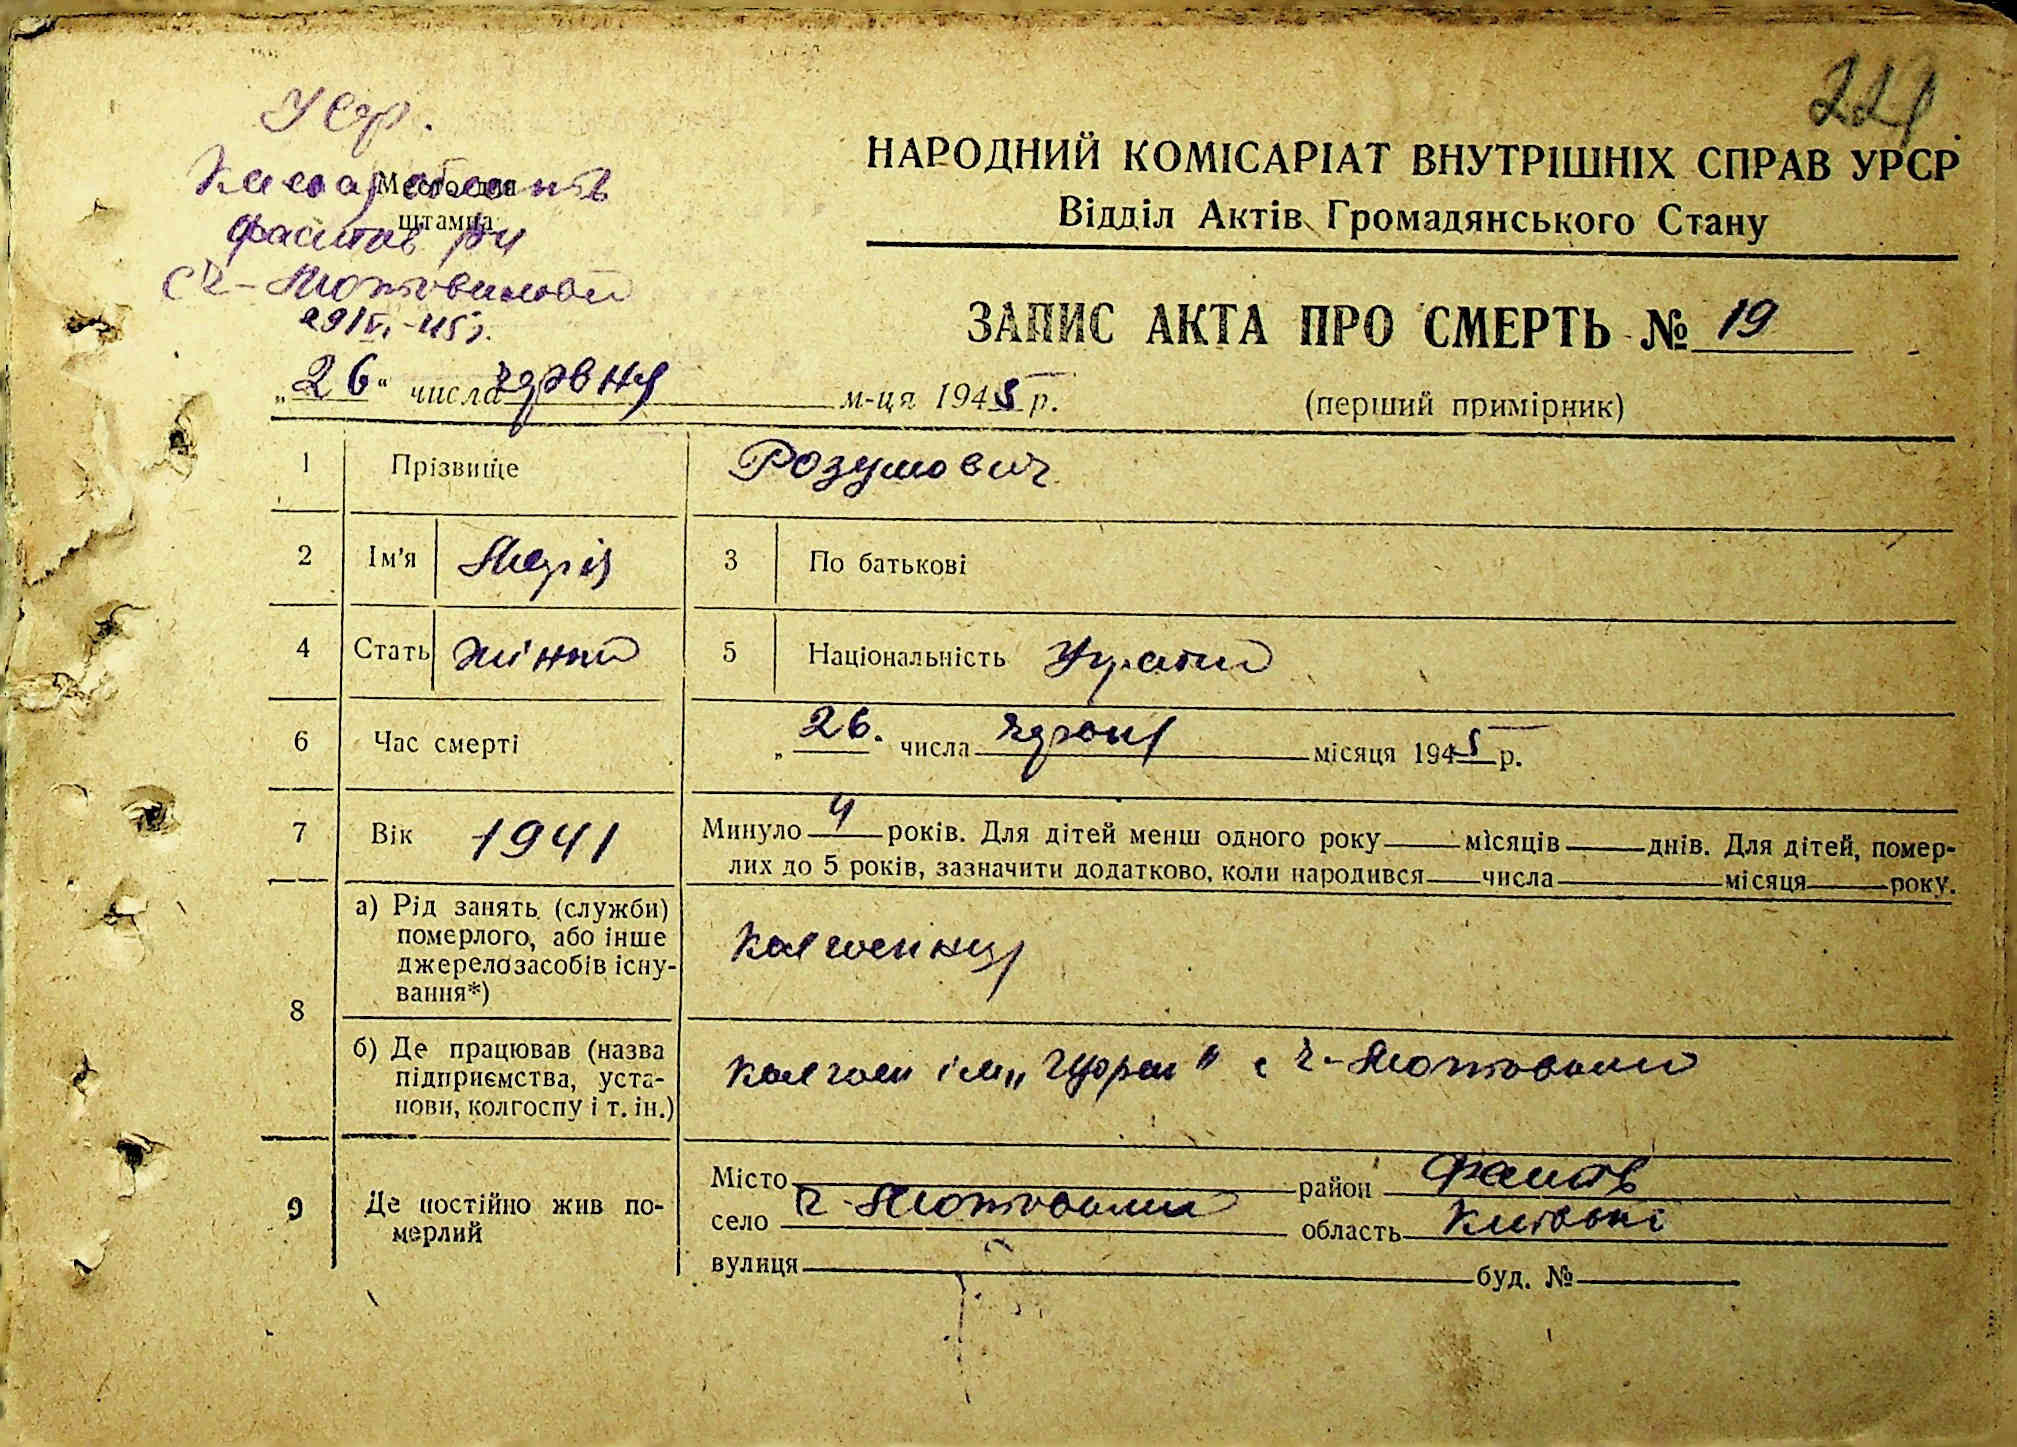 221
УСР.
Місце для
штампа
Фастів р-н
с Ч-Мотовилов
29/VI-45 р.
НАРОДНИЙ КОМІСАРІАТ ВНУТРІШНІХ СПРАВ УРСР
Відділ Актів Громадянського Стану
ЗАПИС АКТА ПРО СМЕРТЬ № 19
„26“ числа червня м-ця 1945 р.
(перший примірник)
1 Прізвище Розумович
2 Ім'я Марія 3 По батькові
4 Стать жіноч 5 Національність Україн
6 Час смерті „26“ числа червня місяця 1945 р.
7 Вік 1941 Минуло 4 років. Для дітей менш одного року місяців днів. Для дітей, помер-
лих до 5 років, зазначити додатково, коли народився числа місяця року.
8 а) Рід занять (служби)
померлого, або інше
джерело засобів існу-
вання*)
б) Де працював (назва
підприємства, уста-
нови, колгоспу і т. ін.)
колгосп ім „ “ с Ч-Мотовили
9 Де постійно жив по-
мерлий
Місто район Фастів
село Ч-Мотовили область Київські
вулиця буд. №